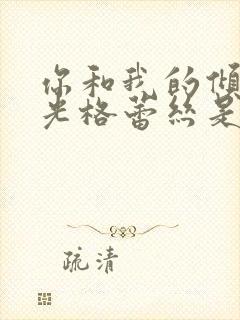 你和我的倾
光格蕾丝是
疏清